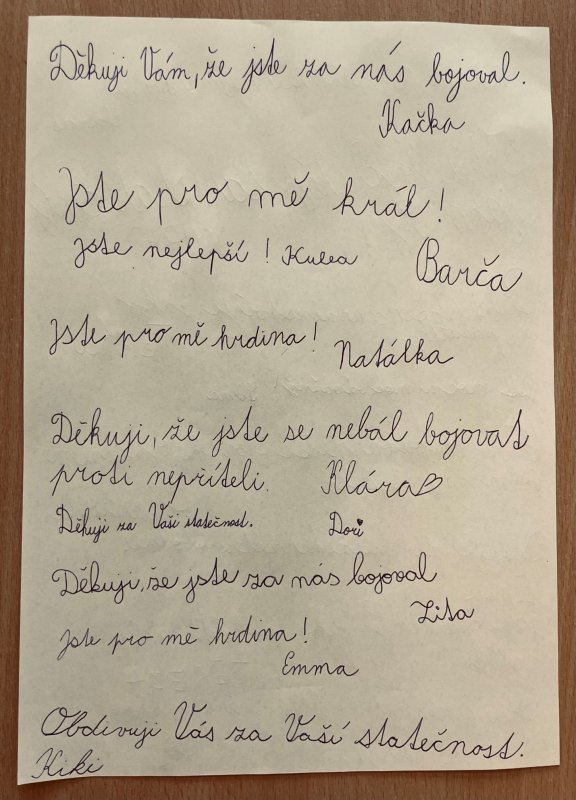 Děkuji Vám, že jste za nás bojoval.
Kačka
Jste pro mě král!
Jste nejlepší!
Barča
Jste pro mě hrdina!
Natálka
Děkuji, že jste se nebál bojovat
proti nepříteli. Klára
Děkuji za Vaši statečnost. Dori
Děkuji, že jste za nás bojoval
Zita
Jste pro mě hrdina!
Emma
Obdivuji Vás za Vaší statečnost.
Kiki